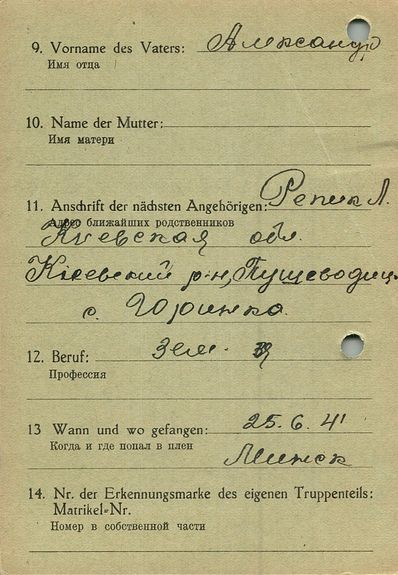 9. Vorname des Vaters: Александр
Имя отца
10. Name der Mutter:
Имя матери
11. Anschrift der nächsten Angehörigen: Репик Л.
Адрес ближайших родственников
Киевская обл.
Киевский р-н, Пущеводиц
с. Горинка
12. Beruf: зем.
Профессия
13 Wann und wo gefangen: 25.6.41
Когда и где попал в плен
Минск
14. Nr. der Erkennungsmarke des eigenen Truppenteils:
Matrikel-Nr.
Номер в собственной части